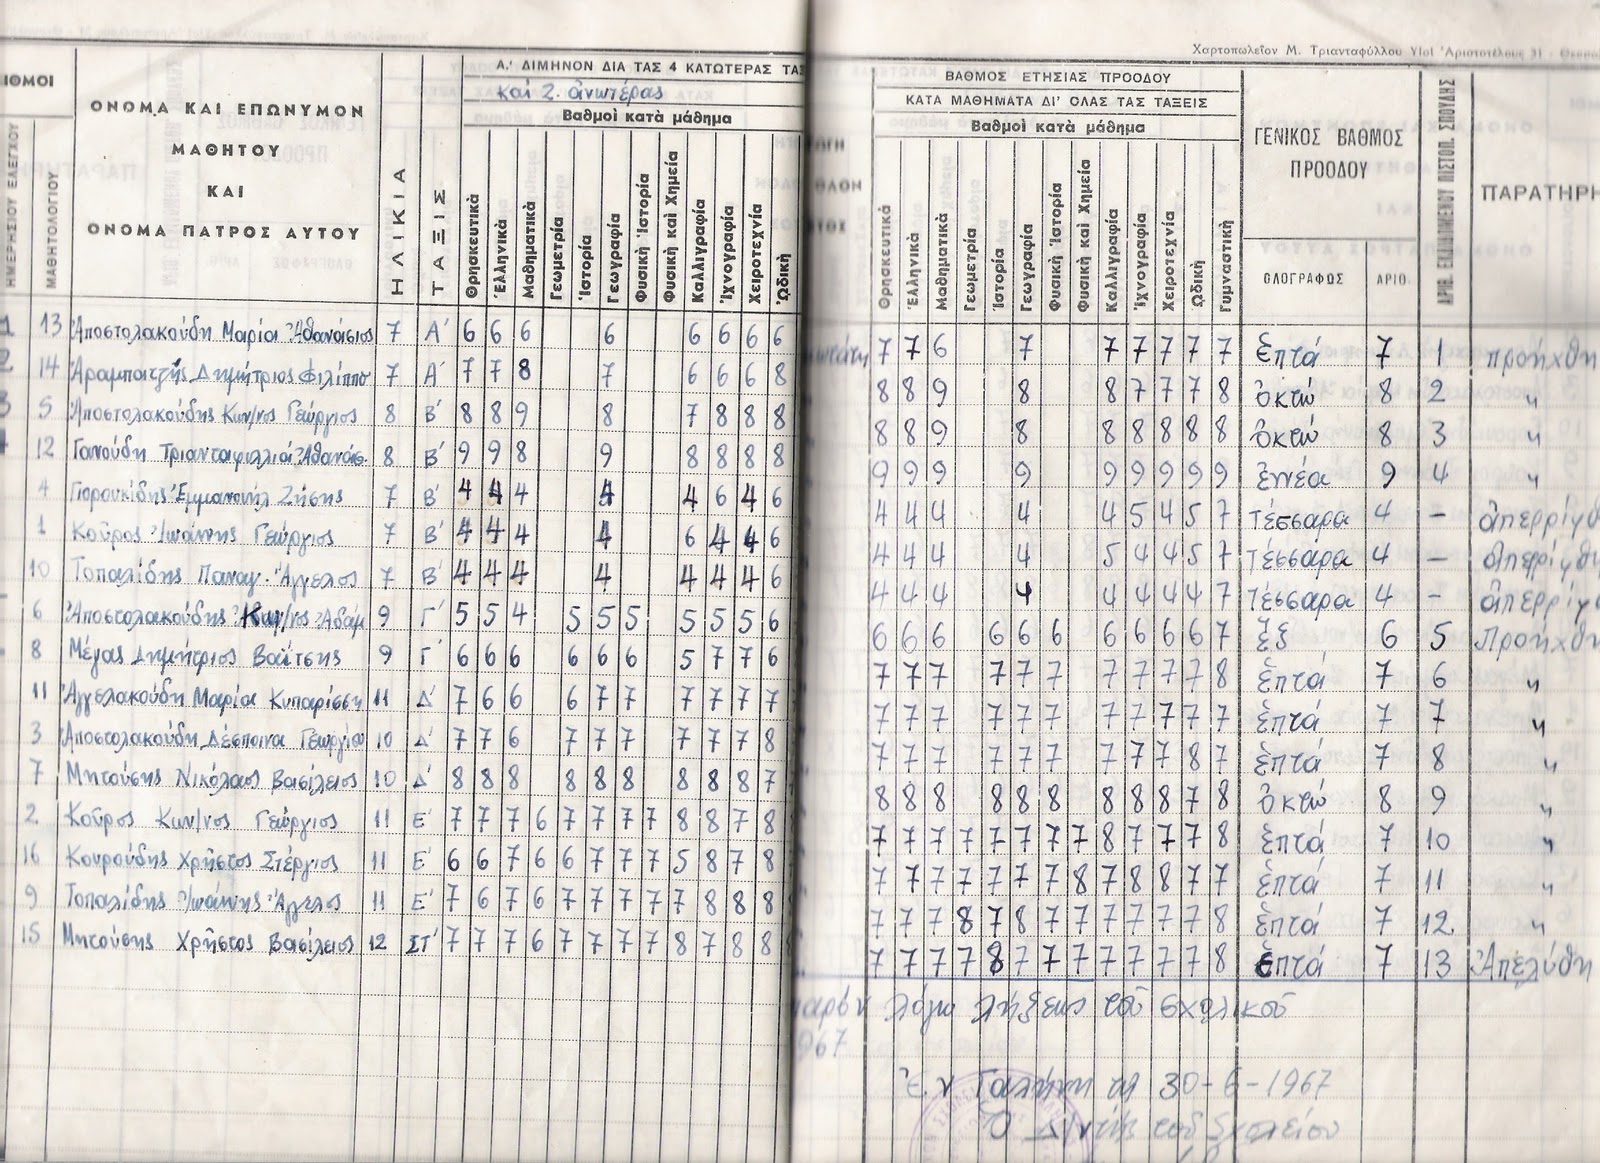 Χαρτοπωλεῖον Μ. Τριανταφύλλου Υἱοὶ Ἀριστοτέλους 31 -
Α.' ΔΙΜΗΝΟΝ ΔΙΑ ΤΑΣ 4 ΚΑΤΩΤΕΡΑΣ ΤΑΣ
καί 2. ἀνωτέρας
Βαθμοὶ κατὰ μάθημα
ΒΑΘΜΟΣ ΕΤΗΣΙΑΣ ΠΡΟΟΔΟΥ
ΚΑΤΑ ΜΑΘΗΜΑΤΑ ΔΙ' ΟΛΑΣ ΤΑΣ ΤΑΞΕΙΣ
Βαθμοὶ κατὰ μάθημα
ΙΘΜΟΙ
ΗΜΕΡΗΣΙΟΥ ΕΛΕΓΧΟΥ
ΜΑΘΗΤΟΛΟΓΙΟΥ
ΟΝΟΜΑ ΚΑΙ ΕΠΩΝΥΜΟΝ
ΜΑΘΗΤΟΥ
ΚΑΙ
ΟΝΟΜΑ ΠΑΤΡΟΣ ΑΥΤΟΥ
ΗΛΙΚΙΑ
ΤΑΞΙΣ
Θρησκευτικὰ Ἑλληνικὰ Μαθηματικὰ Γεωμετρία Ἱστορία Γεωγραφία Φυσικὴ Ἱστορία Φυσικὴ καὶ Χημεία Καλλιγραφία Ἰχνογραφία Χειροτεχνία Ὠδικὴ
Θρησκευτικὰ Ἑλληνικὰ Μαθηματικὰ Γεωμετρία Ἱστορία Γεωγραφία Φυσικὴ Ἱστορία Φυσικὴ καὶ Χημεία Καλλιγραφία Ἰχνογραφία Χειροτεχνία Ὠδικὴ Γυμναστικὴ
ΓΕΝΙΚΟΣ ΒΑΘΜΟΣ
ΠΡΟΟΔΟΥ
ΟΛΟΓΡΑΦΩΣ ΑΡΙΘ.
ΑΡΙΘ. ΕΚΔΙΔΟΜΕΝΟΥ ΠΙΣΤΟΠ. ΣΠΟΥΔΗΣ
ΠΑΡΑΤΗΡΗ
1 13 Ἀποστολακούδη Μαρία Ἀθανάσιος 7 Α' 6 6 6 6 6 6 6 6 7 7 6 7 7 7 7 7 7 ἑπτά 7 1 προήχθη
2 14 Ἀραμπατζῆς Δημήτριος Φιλίππο 7 Α' 7 7 8 7 6 6 6 8 8 8 9 8 8 7 7 7 8 ὀκτώ 8 2 "
3 5 Ἀποστολακούδης Κων/νος Γεώργιος 8 Β' 8 8 9 8 7 8 8 8 8 8 9 8 8 8 8 8 8 ὀκτώ 8 3 "
12 Γανούδη Τριανταφυλλιά Ἀθανάσ. 8 Β' 9 9 8 9 8 8 8 8 9 9 9 9 9 9 9 9 9 ἐννέα 9 4 "
4 Γιορουκίδης Ἐμμανουήλ Ζήσης 7 Β' 4 4 4 4 4 6 4 6 4 4 4 4 4 5 4 5 7 τέσσαρα 4 - ἀπερρίφθ
1 Κοῦρος Ἰωάννης Γεώργιος 7 Β' 4 4 4 4 6 4 4 6 4 4 4 4 5 4 4 5 7 τέσσαρα 4 - ἀπερρίφθη
10 Τοπαλίδης Παναγ. Ἄγγελος 7 Β' 4 4 4 4 4 4 4 6 4 4 4 4 4 4 4 4 7 τέσσαρα 4 - ἀπερρίφθ
6 Ἀποστολακούδης Κων/νος Ἀδάμ 9 Γ' 5 5 4 5 5 5 5 5 5 6 6 6 6 6 6 6 6 6 6 6 7 ἕξ 6 5 Προήχθη
8 Μέγας Δημήτριος Βαΐτσης 9 Γ' 6 6 6 6 6 6 5 7 7 6 7 7 7 7 7 7 7 7 7 7 8 ἑπτά 7 6 "
11 Ἀγγελακούδη Μαρία Κυπαρίσση 11 Δ' 7 6 6 6 7 7 7 7 7 7 7 7 7 7 7 7 7 7 7 7 7 ἑπτά 7 7 "
3 Ἀποστολακούδη Δέσποινα Γεωργίου 10 Δ' 7 7 6 7 7 7 7 7 7 8 7 7 7 7 7 7 7 7 7 8 7 ἑπτά 7 8 "
7 Μητούσης Νικόλαος Βασίλειος 10 Δ' 8 8 8 8 8 8 8 8 8 7 8 8 8 8 8 8 8 8 8 7 8 ὀκτώ 8 9 "
2 Κοῦρος Κων/νος Γεώργιος 11 Ε' 7 7 7 6 7 7 7 7 8 8 7 8 7 7 7 7 7 7 7 7 8 7 7 7 8 ἑπτά 7 10 "
16 Κουρούδης Χρῆστος Στέργιος 11 Ε' 6 6 7 6 6 7 7 7 5 8 7 8 7 7 7 7 7 7 7 8 7 8 8 7 7 ἑπτά 7 11 "
9 Τοπαλίδης Ἰωάννης Ἄγγελος 11 Ε' 7 6 7 6 7 7 7 7 7 8 8 8 7 7 7 8 7 8 7 7 7 7 7 7 8 ἑπτά 7 12. "
15 Μητούσης Χρῆστος Βασίλειος 12 ΣΤ' 7 7 7 6 7 7 7 7 8 7 8 8 7 7 7 7 8 7 7 7 7 7 7 7 8 ἑπτά 7 13 Ἀπελύθη
λόγω λήξεως τοῦ σχολικοῦ
967
Ἐν τῇ 30-6-1967
Ὁ Δ/ντής τοῦ Σχολείου